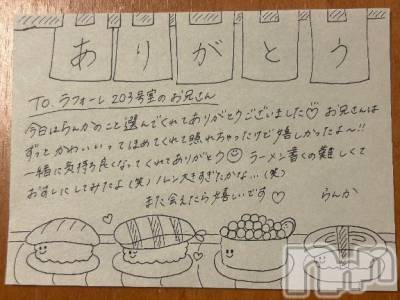 ありがとう
To. ラフォーレ203号室のお兄さん
今日はらんかのこと選んでくれてありがとうございました♡ お兄さんは
ずっとかわいいってほめてくれて照れちゃったけど嬉しかったよ〜!!
一緒に気持ち良くなってくれてありがとう☺ ラーメン書くの難しくて
おすしにしてみたよ(笑) ノレン大きすぎたかな…(笑)
また会えたら嬉しいです♡ らんか